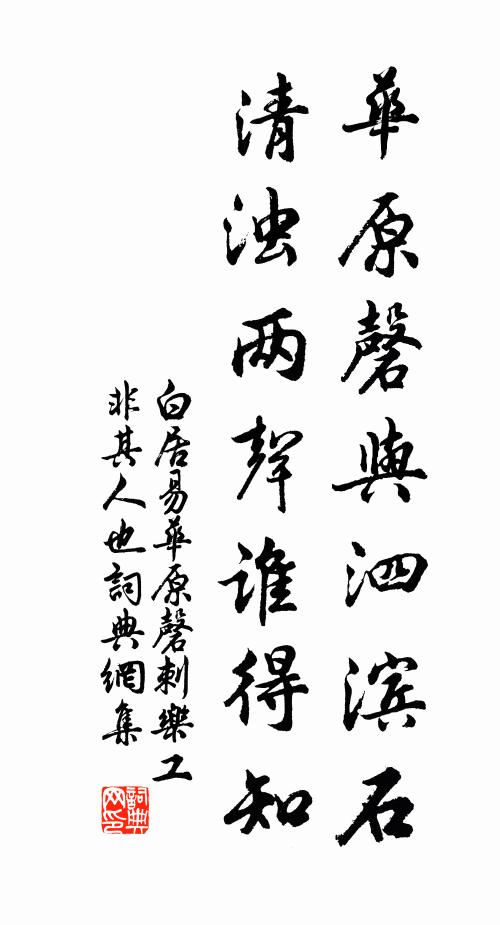 華原磬與泗滨石
清浊两聲誰得知
白居易華原磬刺樂工
非其人也詞典網集
詞典
网印